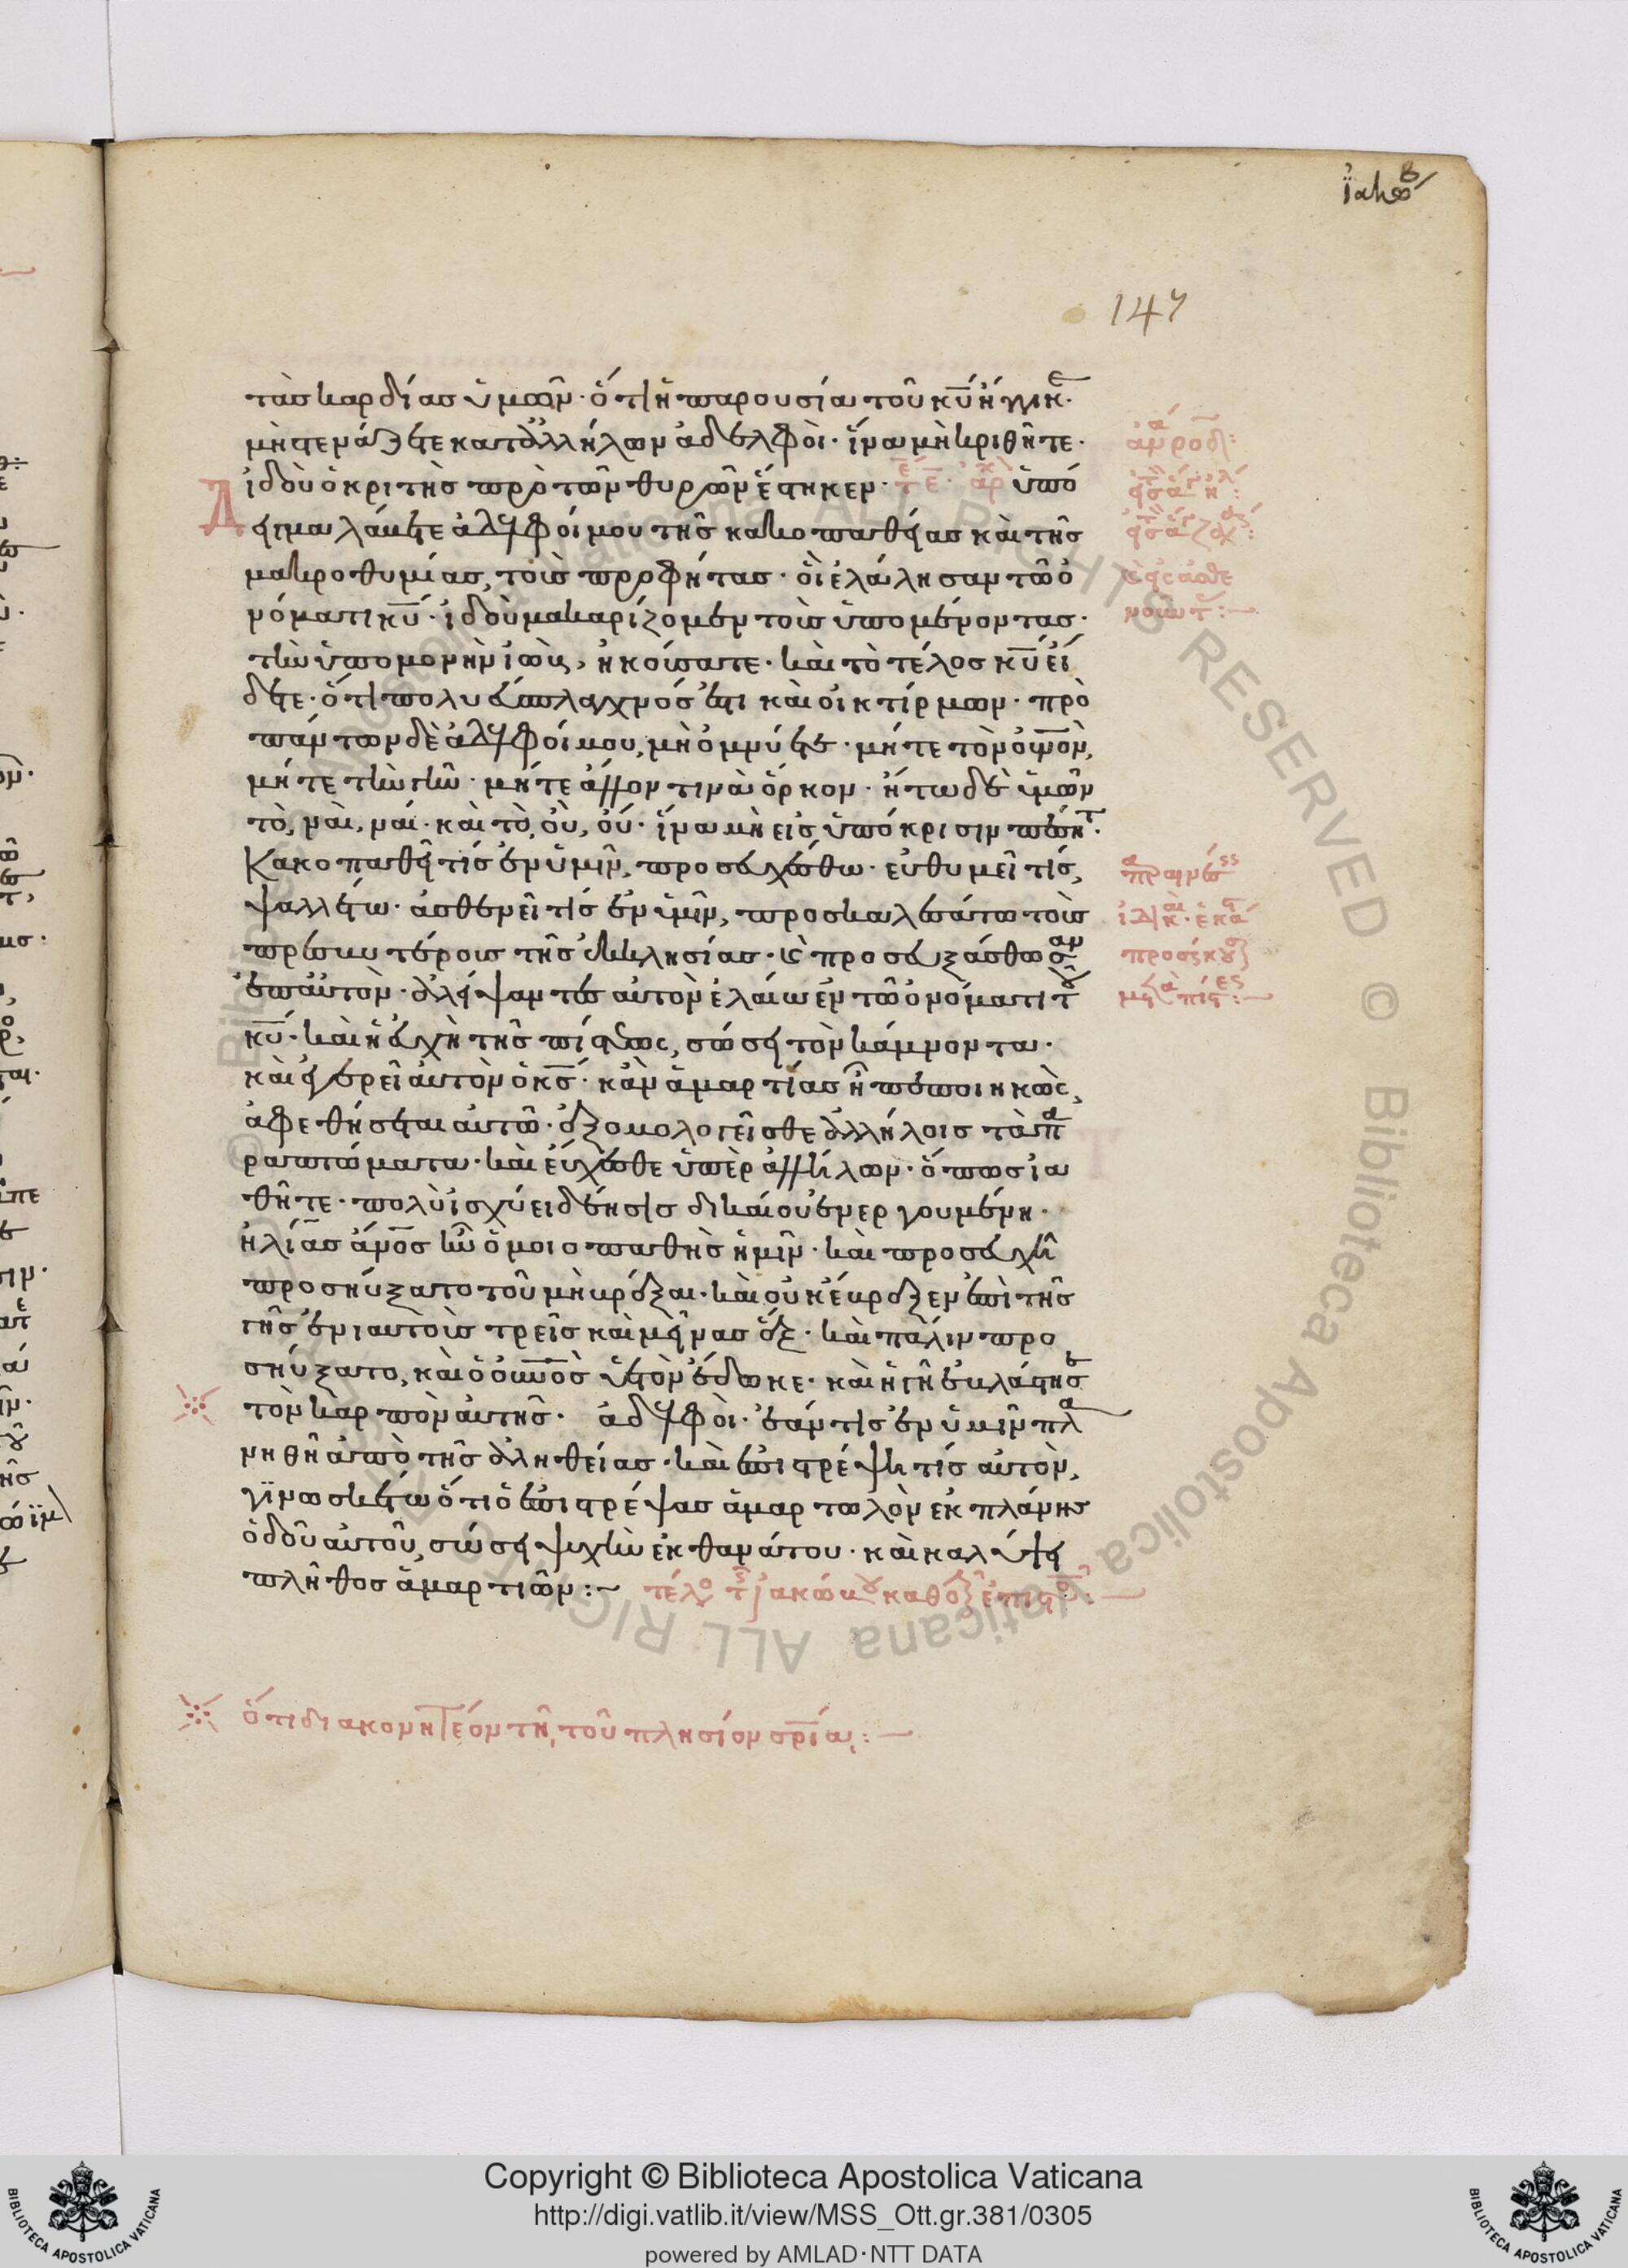 ϊακωβ
147
τὰς καρδίας ὑμῶν· ὅτι ἡ παρουσία τοῦ κυ ἤγγικε·
μὴ στενάζετε κατ ἀλλήλων ἀδελφοὶ· ἵνα μὴ κριθῆτε·
ἰδοὺ ὁ κριτὴς πρὸ τῶν θυρῶν ἕστηκεν· ὑπό
δειγμα λάβετε ἀδελφοί μου τῆς κακοπαθείας καὶ τῆς
μακροθυμίας, τοὺς προφήτας· οἳ ἐλάλησαν τῶ ὀ
νόματι κυ· ἰδοὺ μακαρίζομεν τοὺς ὑπομένοντας·
τὴν ὑπομονὴν ἰὼβ, ἠκούσατε· καὶ τὸ τέλος κυ εἴ
δετε· ὅτι πολυεύσπλαγχνός ἐστι καὶ οἰκτίρμων· πρὸ
πάντων δὲ ἀδελφοί μου, μὴ ὀμνύετε· μήτε τὸν οὐνον,
μήτε τὴν γῆν· μήτε ἄλλον τινὰ ὅρκον· ἤτω δὲ ὑμῶν
τὸ, ναὶ, ναί· καὶ τὸ, οὒ, οὔ· ἵνα μὴ εἰς ὑπόκρισιν πέσητ·
Κακοπαθεῖ τίς ἐν ὑμῖν, προσευχέσθω· εὐθυμεῖ τίς,
ψαλλέτω· ἀσθενεῖ τίς ἐν ὑμῖν, προσκαλεσάτω τοὺς
πρεσβυτέρους τῆς ἐκκλησίας· καὶ προσευξάσθωσαν
ἐπ αὐτὸν· ἀλείψαντες αὐτὸν ἐλαίω ἐν τῶ ὀνόματι τοῦ
κυ· καὶ ἡ εὐχὴ τῆς πίστεως, σώσει τὸν κάμνοντα·
καὶ ἐγερεῖ αὐτὸν ὁ κς· κἂν ἁμαρτίας ἦ πεποιηκὼς,
ἀφεθήσεται αὐτῶ· ἐξομολογεῖσθε ἀλλήλοις τὰ πα
ραπτώματα· καὶ εὔχεσθε ὑπὲρ ἀλλήλων· ὅπως ἰα
θῆτε· πολὺ ἰσχύει δέησις δικαίου ἐνεργουμένη·
ἠλίας ἄνος ἦν ὁμοιοπαθὴς ἡμῖν· καὶ προσευχῆ
προσηύξατο τοῦ μὴ βρέξαι· καὶ οὐκ ἔβρεξεν ἐπὶ τῆς
γῆς ἐνιαυτοὺς τρεῖς καὶ μῆνας ἕξ· καὶ πάλιν προ
σηύξατο, καὶ ὁ οὐνος ὑετὸν ἔδωκε· καὶ ἡ γῆ ἐβλάστησε
τὸν καρπὸν αὐτῆς· ἀδελφοὶ· ἐάν τις ἐν ὑμῖν πλα
νηθῆ ἀπὸ τῆς ἀληθείας· καὶ ἐπιστρέψη τίς αὐτὸν,
γϊνωσκέτω ὅτι ὁ ἐπιστρέψας ἁμαρτωλὸν ἐκ πλάνης
ὁδοῦ αὐτοῦ, σώσει ψυχὴν ἐκ θανάτου· καὶ καλύψει
πλῆθος ἁμαρτιῶν:~ τέλος τῆς ἰακώβου καθολ ἐπιστο:
ὅτι διακονητέον τῆ, τοῦ πλησίον σρία,:
Copyright © Biblioteca Apostolica Vaticana
http://digi.vatlib.it/view/MSS_Ott.gr.381/0305
powered by AMLAD·NTT DATA
BIBLIOTECA APOSTOLICA VATICANA
BIBLIOTECA APOSTOLICA VATICANA